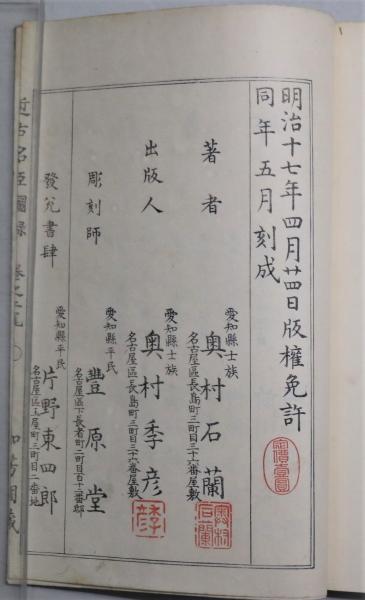 明治十七年四月廿四日版權免許
同年五月刻成
定價壹圓
著者
愛知縣士族
奥村石蘭
名古屋區長島町三丁目三十六番屋敷
奥村石蘭
出版人
愛知縣士族
奥村季彦
名古屋區長島町三丁目三十六番屋敷
彫刻師
愛知縣平民
豊原堂
名古屋區下長者町二丁目百十三番邸
發兌書肆
愛知縣平民
片野東四郎
名古屋區玉屋町三丁目二番地
近古名臣圖録